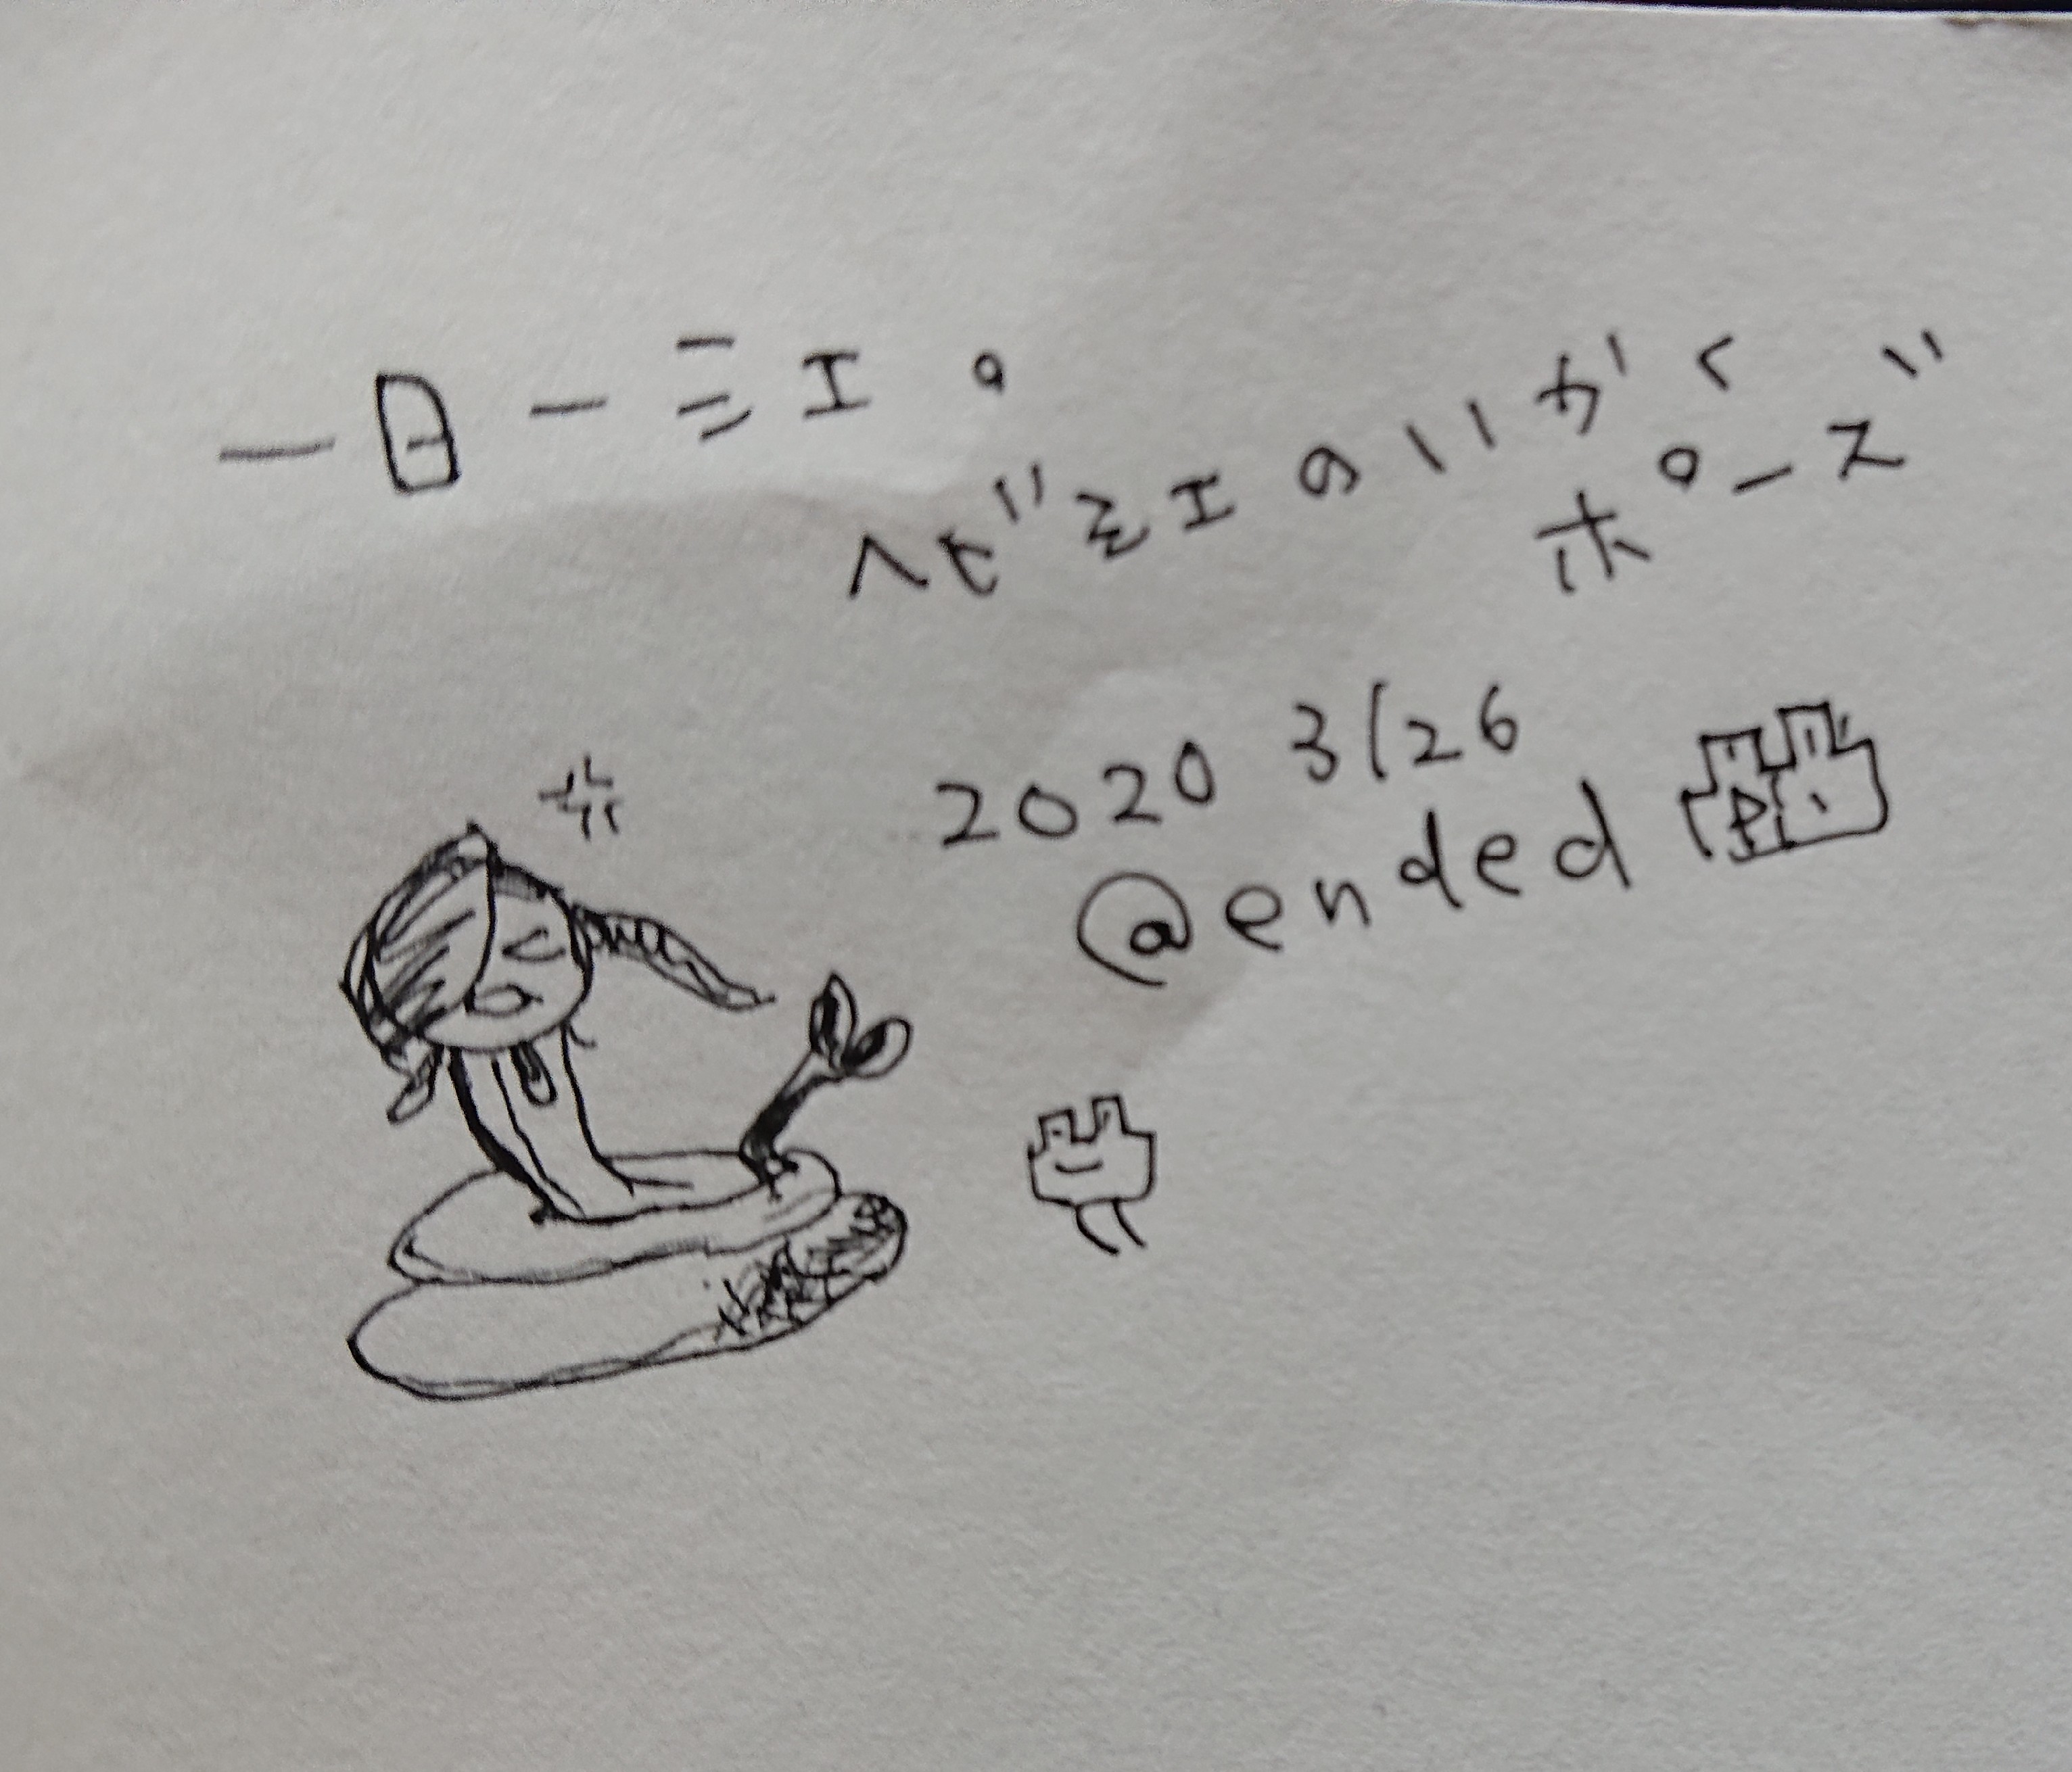 一日一ミエ。
ヘビミエのいがく
ポーズ
2020 3/26
@ended